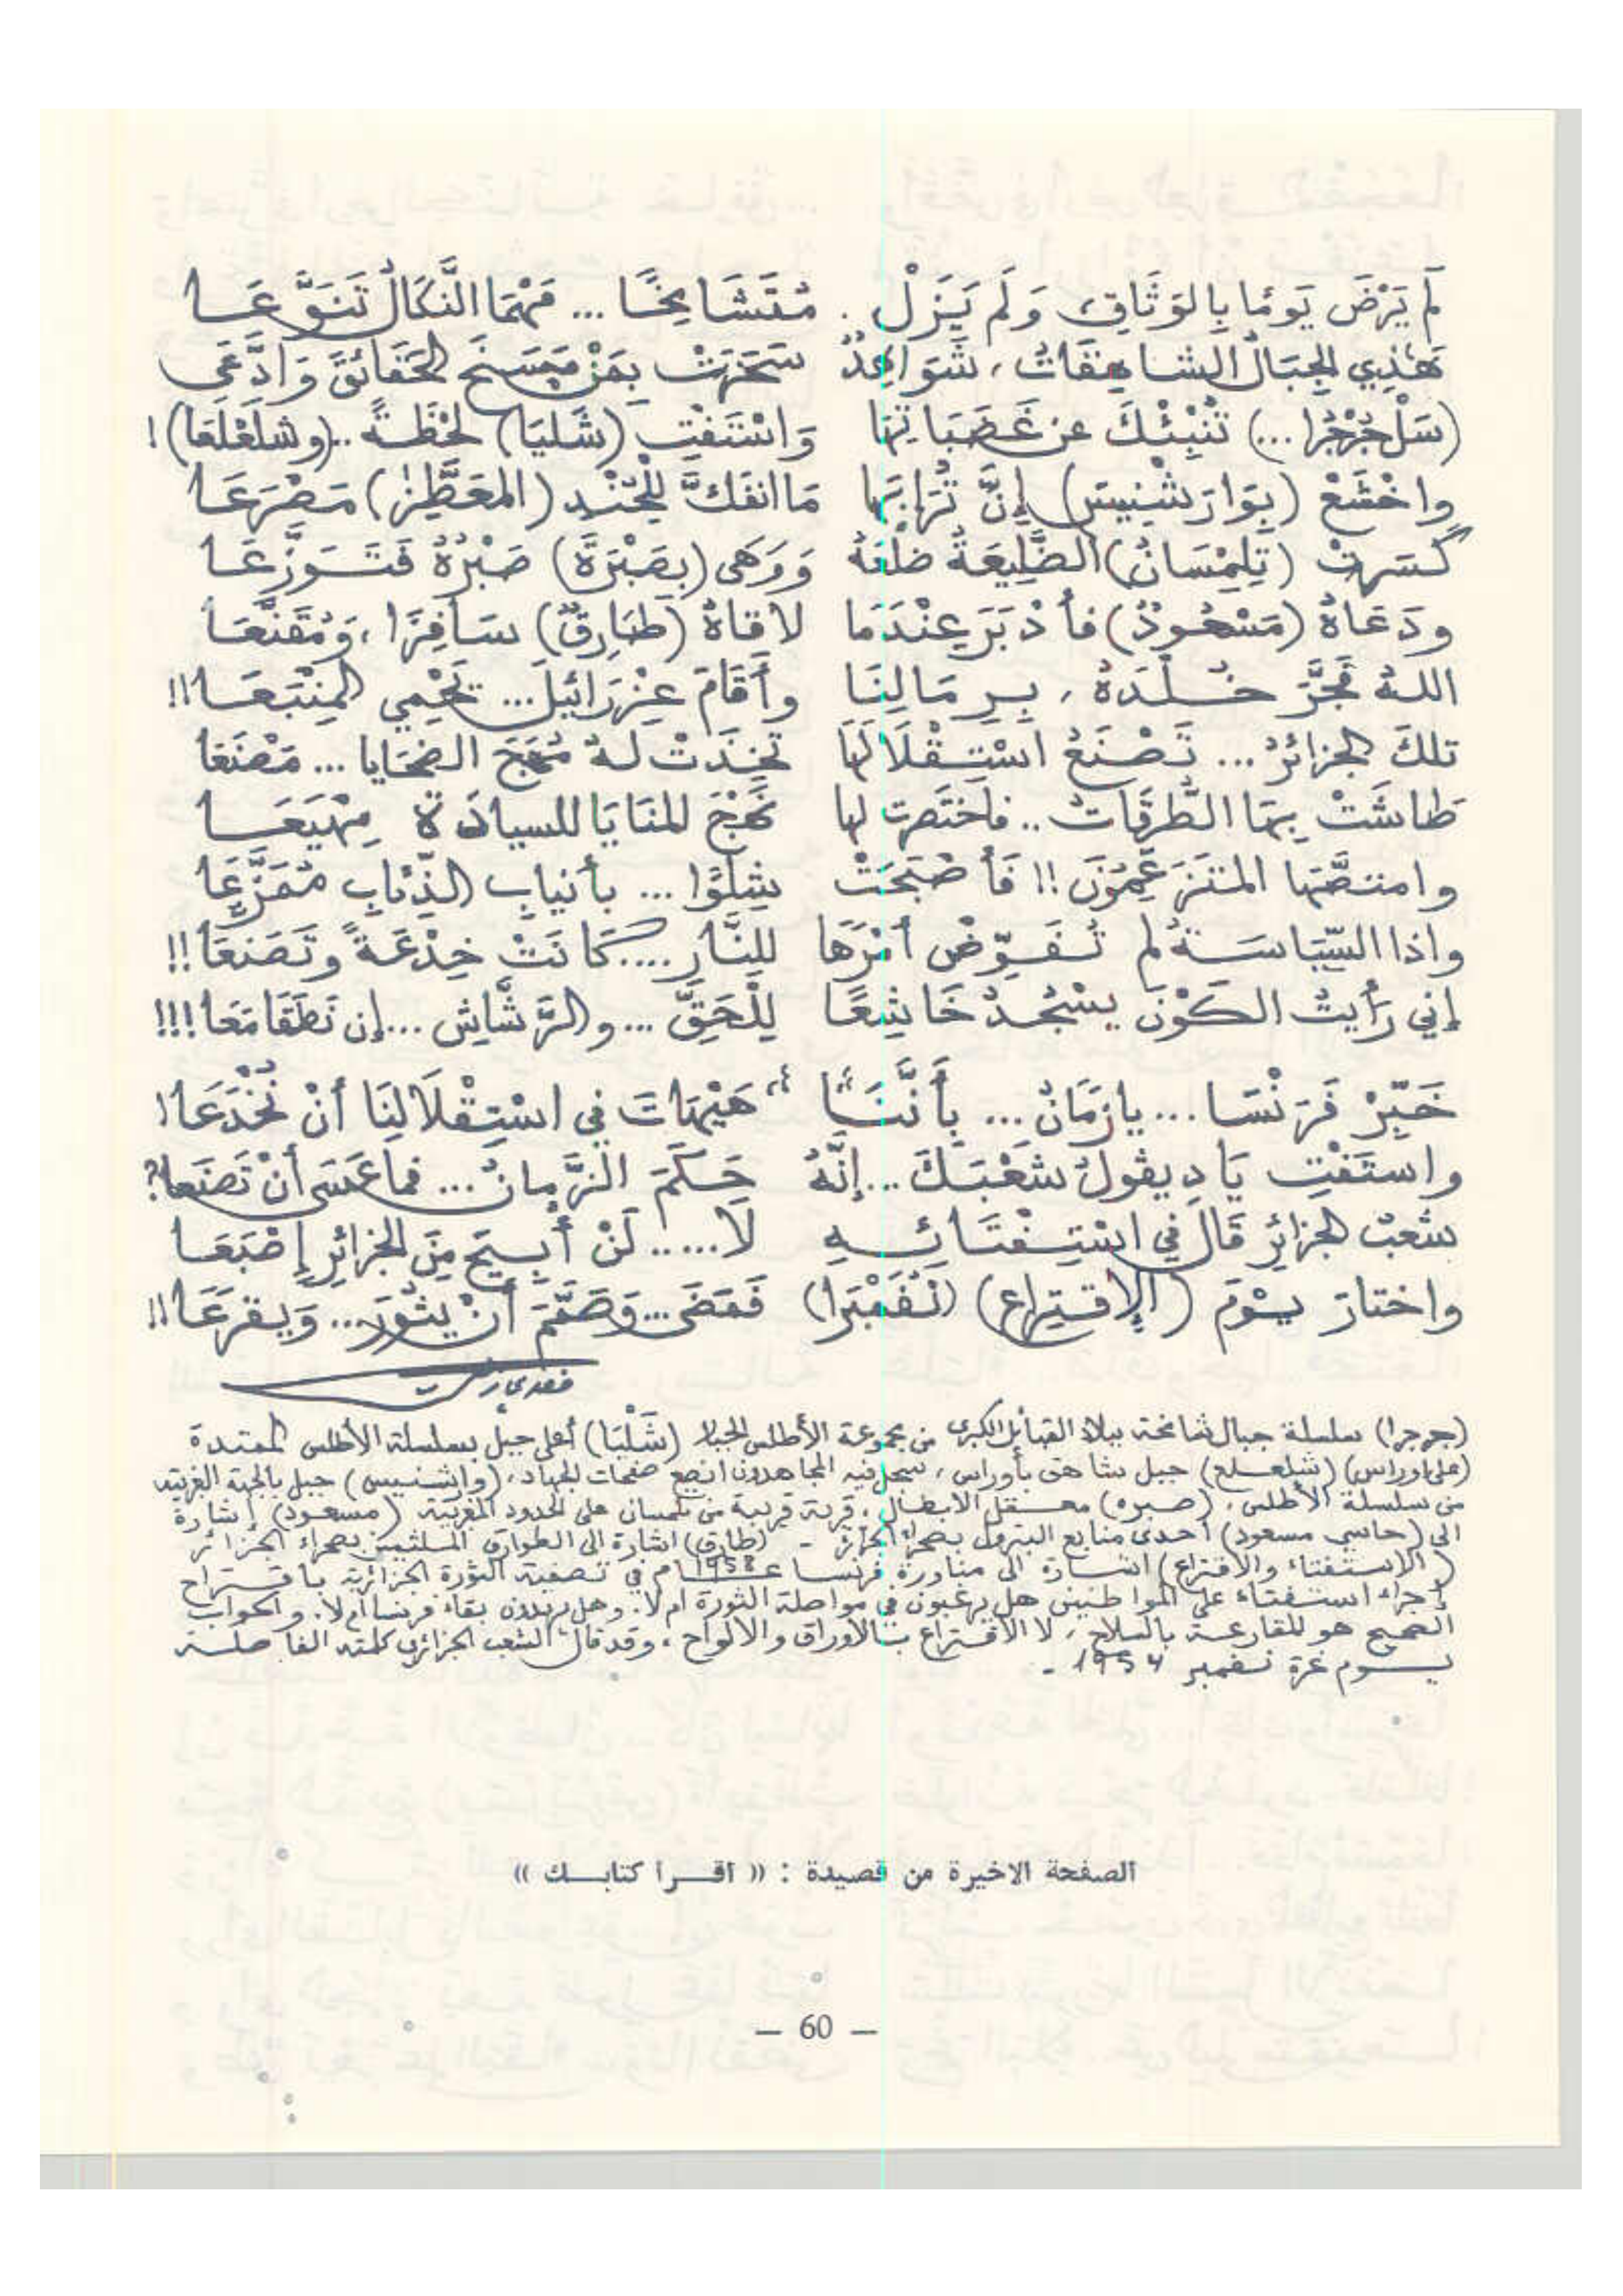 لَمْ يَرْضَ يَومًا بِالوَثَاقِ وَلَم يَزَلْ . مُتَشَامِخًا ... مَهْمَا النَّكَالُ تَنَوَّعَا
هَذِي الجِبَالُ الشاهِقَاتُ ، شَوَاهِدٌ سَخِرَتْ بِمَنْ مَسَخَ الحَقَائِقَ وَادَّعَى
(سَلْ جُرْجُرا ...) تُنْبِئْكَ عن غَضَبَاتِهَا وَاسْتَفْتِ (شَلْيَا) لحْظَةً .. (وشلَعْلَعَا) !
واخْشَعْ (بِوَارَشْنِيسَ) إِنَّ تُرَابَهَا مَا انفَكَّ لِلجُنْدِ (المعَطَّرِ) مَصْرَعَا
كَسَرتْ (تِلِمْسَانُ) الضَّلِيعَةُ ضلْعَهُ وَوَهَى (بِصَبْرَةَ) صَبْرُهُ فَتَوَزَّعَا
ودَعَاهُ (مَسْعُودٌ) فأدْبَرَ عِنْدَمَا لاقاهُ (طَارِقٌ) سَافِرًا ، وَمُقَنَّعَا
اللهُ فَجَّرَ خُلْدَهُ ، بِرِمَالِنَا وأَقَامَ عِزْرَائيلَ ... يَحْمِي المنْبَعَا !!
تلكَ الجزائرُ ... تَصْنَعُ اسْتِقْلَالَهَا تخِذَتْ لهُ مُهَجَ الضحَايا ... مَصْنَعَا
طَاشَتْ بِهَا الطُّرقَاتُ .. فاختَصرت لها نَهْجَ المنَايَا للسيادَة مِهْيَعَا
وامتصَّهَا المتَزَعِّمُونَ !! فَأصْبَحَتْ شِلْوًا ... بأنيابِ الذِّئابِ مُمَزَّعَا
واذا السِّيَاسَةُ لم تُفَوِّض أمْرَهَا للنَّارِ .... كَانَتْ خِدْعَةً وتَصَنعَا !!
إني رَأَيتُ الكَوْنَ يسْجُدُ خَاشِعًا لِلْحَقِّ ... والرَّشَّاشِ ... إن نَطَقَا مَعَا !!!
خَبِّرْ فَرَنْسَا ... يا زَمَانُ ... بأَنَّنَا هَيْهَاتَ في اسْتِقْلَالِنَا أنْ نُخْدَعَا !
واستَفْتِ يَا دِيقُولُ شَعْبَكَ ... إنَّهُ حَكَمَ الزَّمانُ ... فما عَسَى أنْ تَصنَعا ؟
شعْبُ الجزائرِ قَالَ في اسْتِفْتَائِهِ لَا ..... لَنْ أُبيحَ مِنَ الجزائرِ إصْبَعَا
واختارَ يوْمَ (الإقتِراعِ) (نُفَمْبَرا) فَمَضَى ... وَصَمَّمَ أنْ يثُورَ ... وَيقرَعَا !!
(جرجرا) سلسلة جبال شامخة ببلاد القبائل الكبرى من مجموعة الأطلس الجبار (شَلْيَا) أعلى جبل بسلسلة الأطلس الممتدة
(على أوراس) (شلعلع) جبل شاهق بأوراس ، سجل فيه المجاهدون انصع صفحات الجهاد ، (وارشنيس) جبل بالجهة الغربية
من سلسلة الأطلس ، (صبره) معقل الابطال ، قرية قريبة من تلمسان على الحدود المغربية (مسعود) إشارة
الى (حاسي مسعود) أحدى منابع البترول بصحراء الجزائر - (طارق) اشارة الى الطوارق الملثمين بصحراء الجزائر
(الاستفتاء والاقتراع) اشارة الى مناورة فرنسا عام 1958 في تصفية الثورة الجزائرية باقتراح
إجراء استفتاء على المواطنين هل يرغبون في مواصلة الثورة ام لا . وهل يريدون بقاء فرنسا أم لا . والجواب
الصحيح هو للقارعة بالسلاح ، لا الاقتراع بالأوراق والالواح ، وقد قال الشعب الجزائري كلمته الفاصلة
يوم غرة نفمبر 1954 -
الصفحة الاخيرة من قصيدة : « اقرا كتابك »
— 60 —